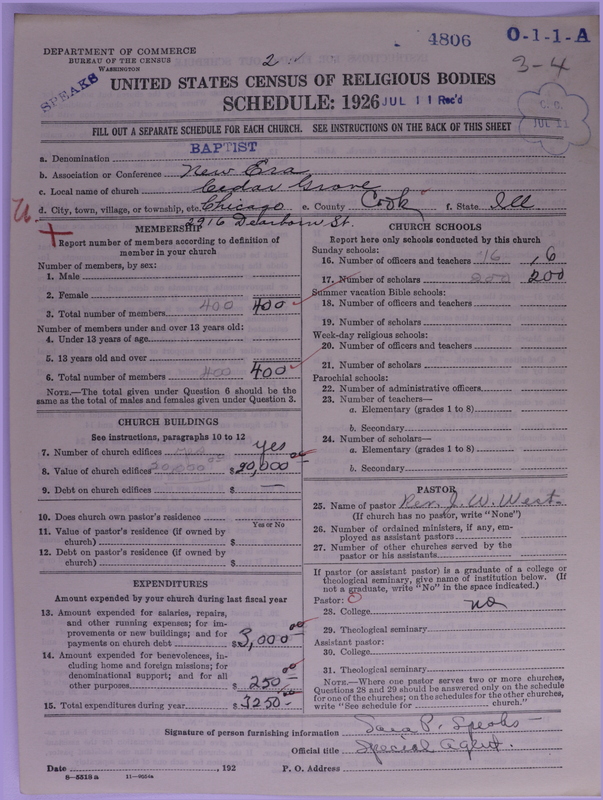 4806 O-1-1-A
DEPARTMENT OF COMMERCE
BUREAU OF THE CENSUS
WASHINGTON
2
3-4
SPEAKS
UNITED STATES CENSUS OF RELIGIOUS BODIES
SCHEDULE: 1926 JUL 11 Rec'd
JUL 11
FILL OUT A SEPARATE SCHEDULE FOR EACH CHURCH. SEE INSTRUCTIONS ON THE BACK OF THIS SHEET
a. Denomination BAPTIST
b. Association or Conference New Era
c. Local name of church Cedar Grove
d. City, town, village, or township, etc. Chicago e. County Cook f. State Ill
2916 Dearborn St.
MEMBERSHIP
Report number of members according to definition of
member in your church
Number of members, by sex:
1. Male
2. Female
3. Total number of members 400 400
Number of members under and over 13 years old:
4. Under 13 years of age
5. 13 years old and over
6. Total number of members 400 400
NOTE.—The total given under Question 6 should be the
same as the total of males and females given under Question 3.
CHURCH BUILDINGS
See instructions, paragraphs 10 to 12
7. Number of church edifices yes
8. Value of church edifices 20,000 00 $ 20,000 00
9. Debt on church edifices $ —
10. Does church own pastor's residence
Yes or No
11. Value of pastor's residence (if owned by
church) $
12. Debt on pastor's residence (if owned by
church) $
EXPENDITURES
Amount expended by your church during last fiscal year
13. Amount expended for salaries, repairs,
and other running expenses; for im-
provements or new buildings; and for
payments on church debt $ 3,000 00
14. Amount expended for benevolences, in-
cluding home and foreign missions; for
denominational support; and for all
other purposes $ 250 00
15. Total expenditures during year $ 3250 00
CHURCH SCHOOLS
Report here only schools conducted by this church
Sunday schools:
16. Number of officers and teachers 16 16
17. Number of scholars 200 200
Summer vacation Bible schools:
18. Number of officers and teachers
19. Number of scholars
Week-day religious schools:
20. Number of officers and teachers
21. Number of scholars
Parochial schools:
22. Number of administrative officers
23. Number of teachers—
a. Elementary (grades 1 to 8)
b. Secondary
24. Number of scholars—
a. Elementary (grades 1 to 8)
b. Secondary
PASTOR
25. Name of pastor Rev. J. W. West
(If church has no pastor, write "None")
26. Number of ordained ministers, if any, em-
ployed as assistant pastors
27. Number of other churches served by the
pastor or his assistants
If pastor (or assistant pastor) is a graduate of a college or
theological seminary, give name of institution below. (If
not a graduate, write "No" in the space indicated.)
Pastor:
28. College no
29. Theological seminary
Assistant pastor:
30. College
31. Theological seminary
NOTE.—Where one pastor serves two or more churches,
Questions 28 and 29 should be answered only on the schedule
for one of the churches; on the schedules for the other churches,
write "See schedule for church."
Signature of person furnishing information Sara P. Speaks
Official title Special Agent.
Date , 192 P. O. Address
8-5319a 11-9054a